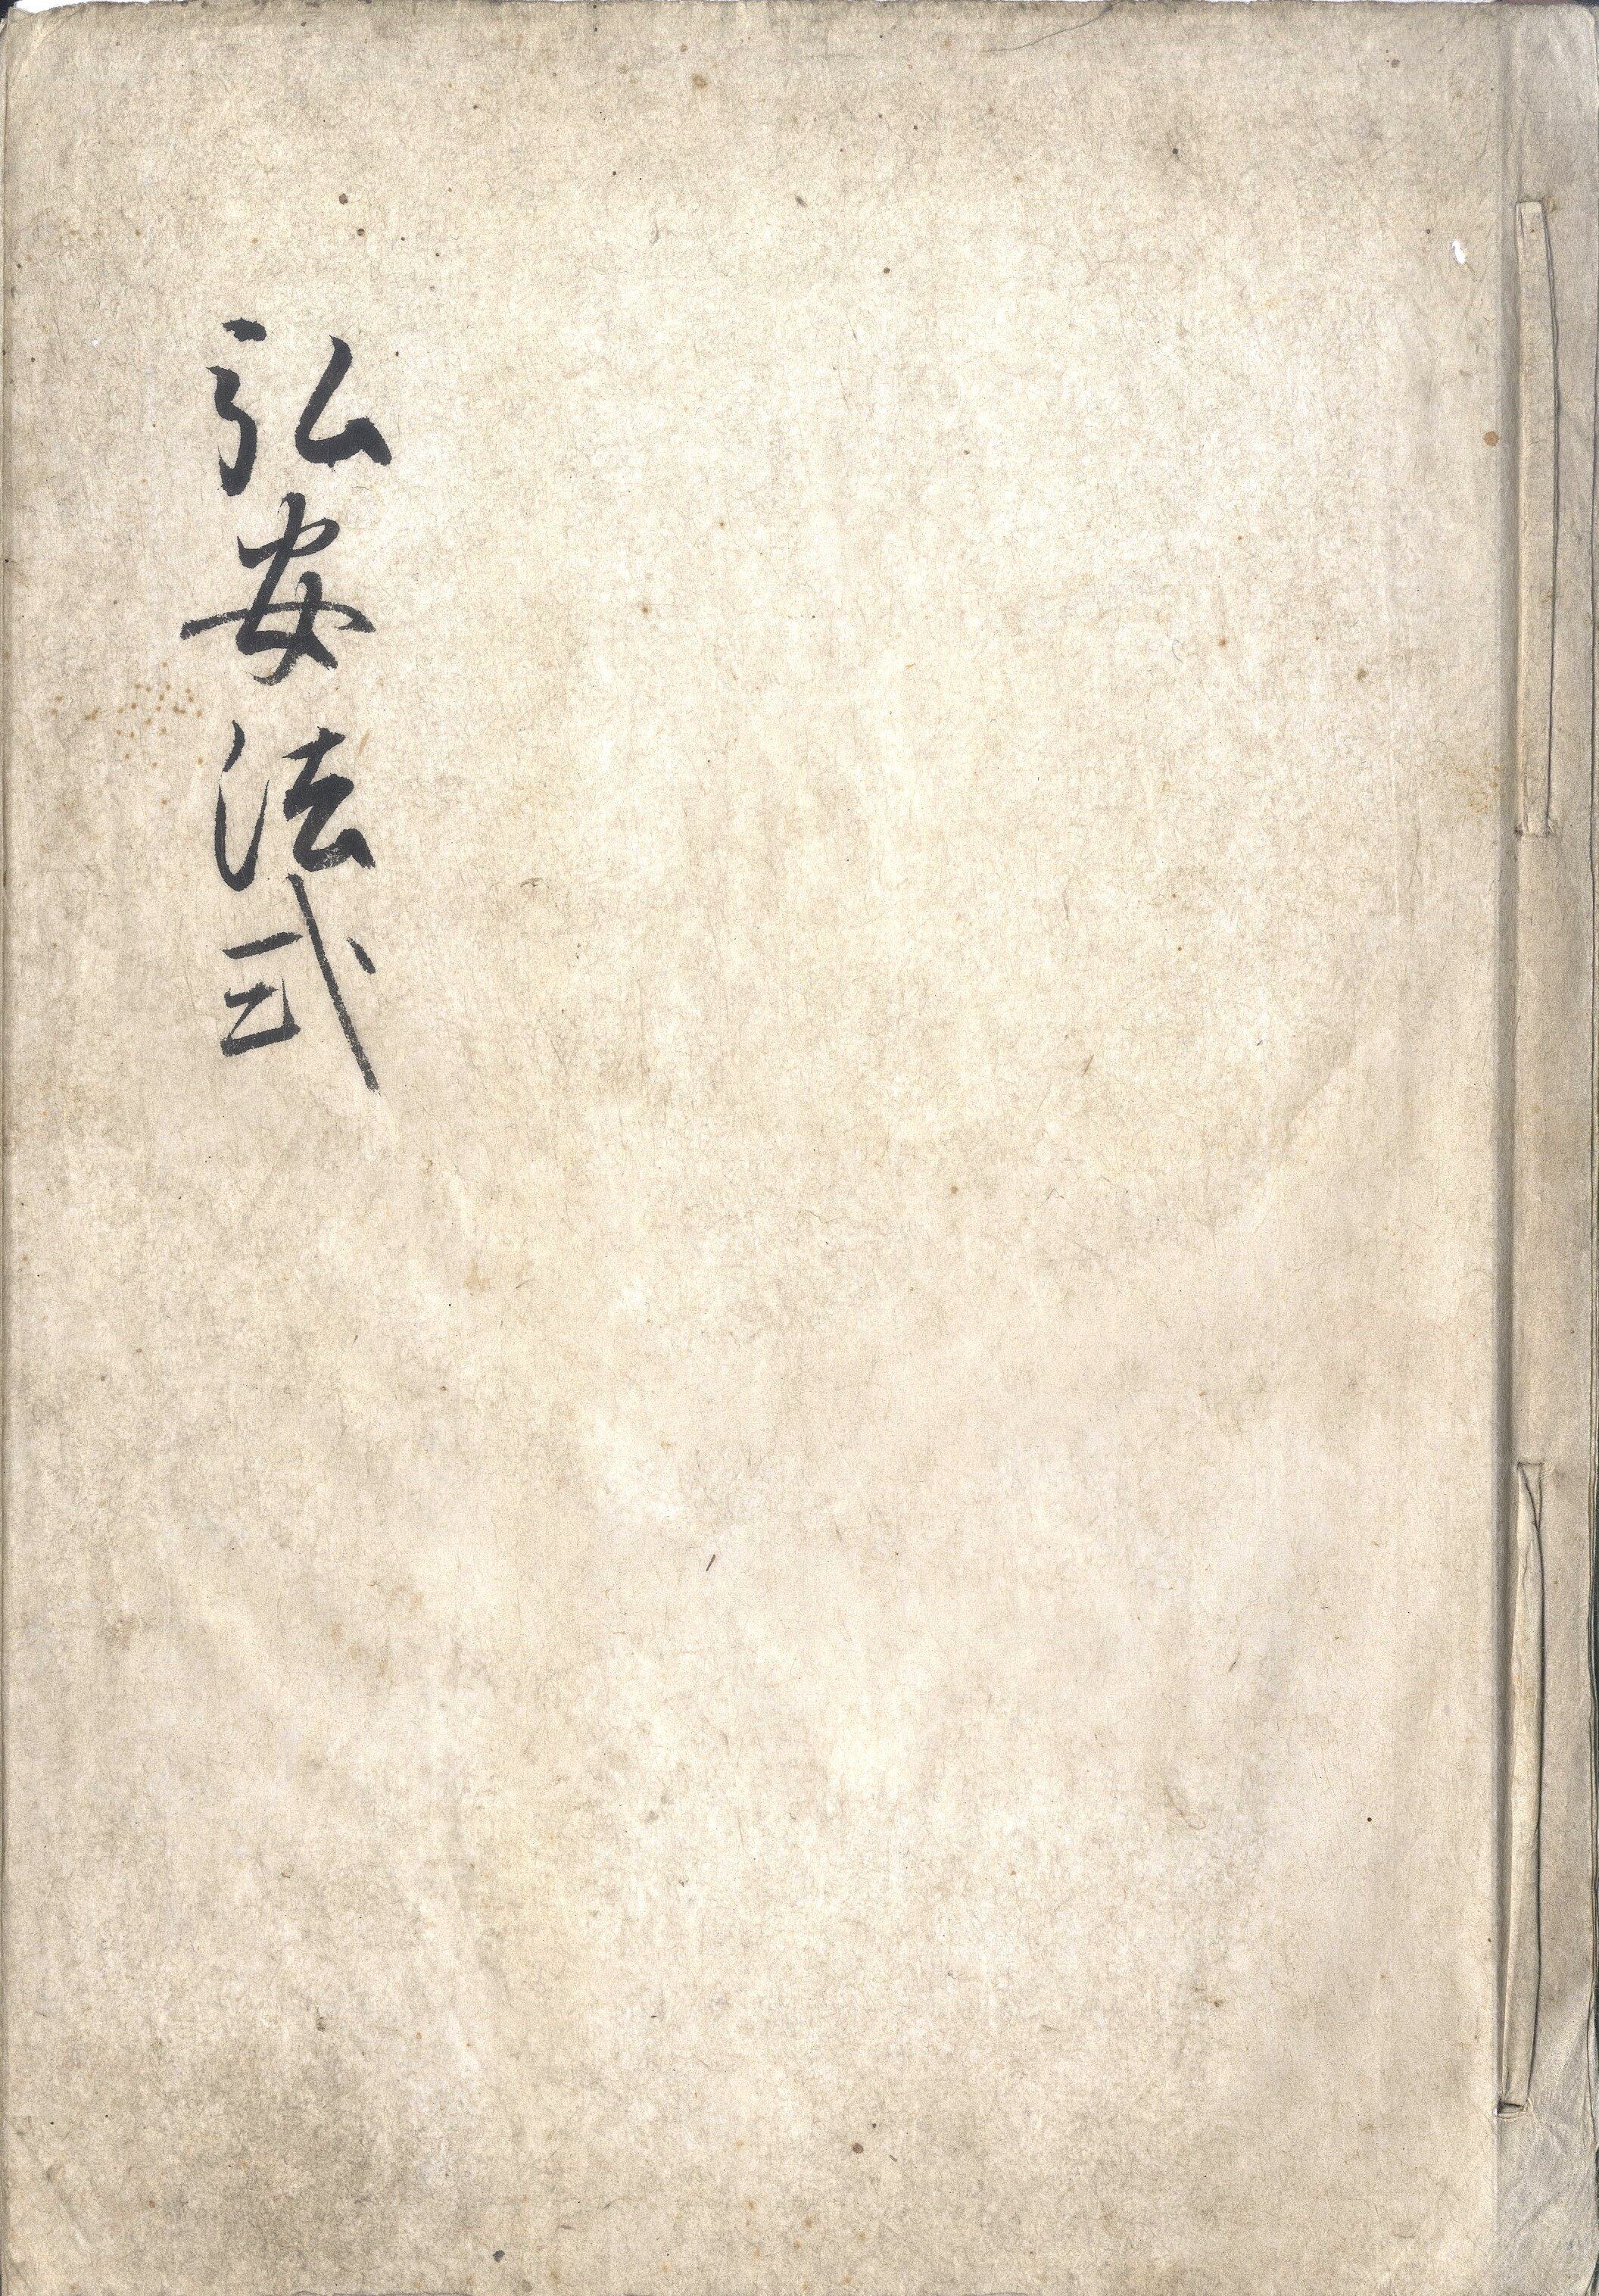 弘安法式